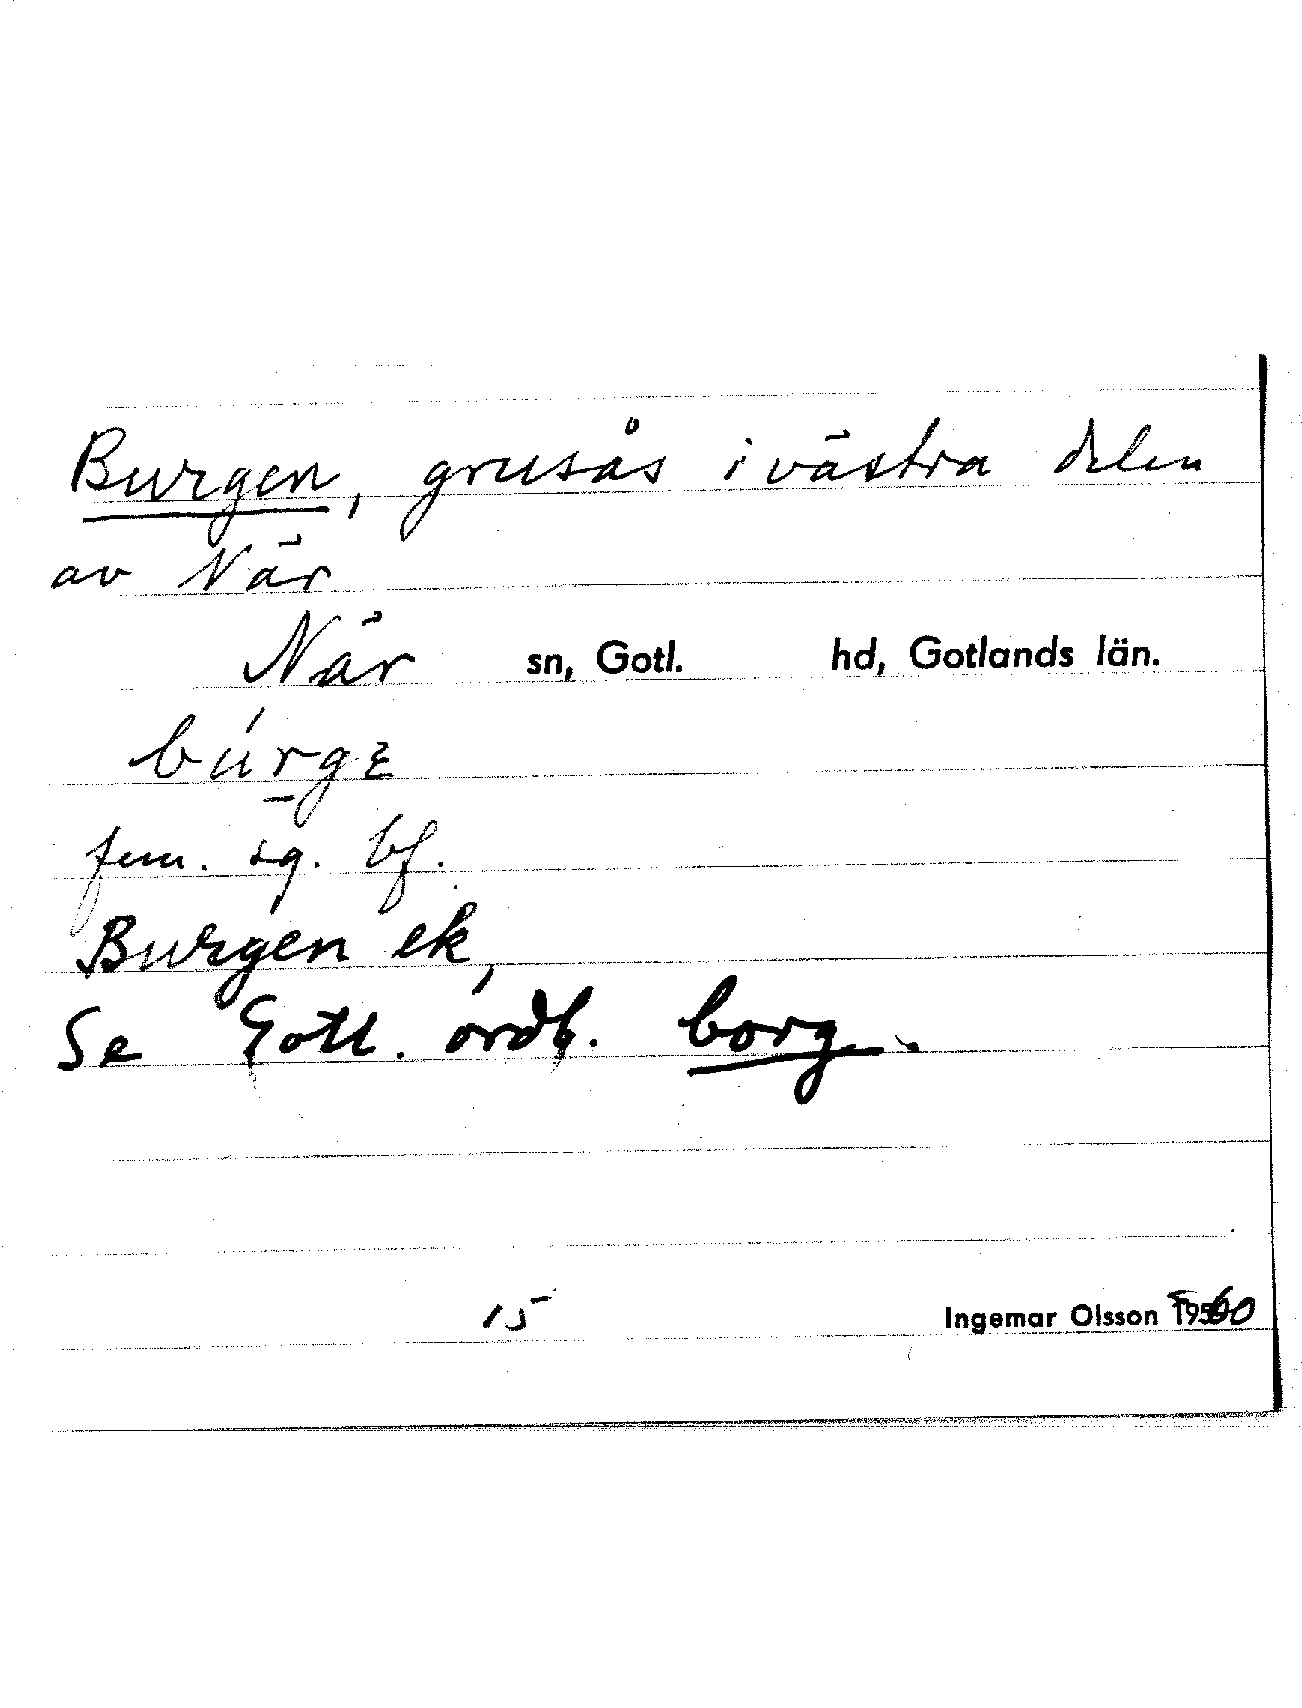 Burgen, grusås i västra delen
av När
När sn, Gotl. hd, Gotlands län.
búrgε
fem. sg. bf.
Burgen ek,
Se Gotl. ordb. borg.
15 Ingemar Olsson 1960